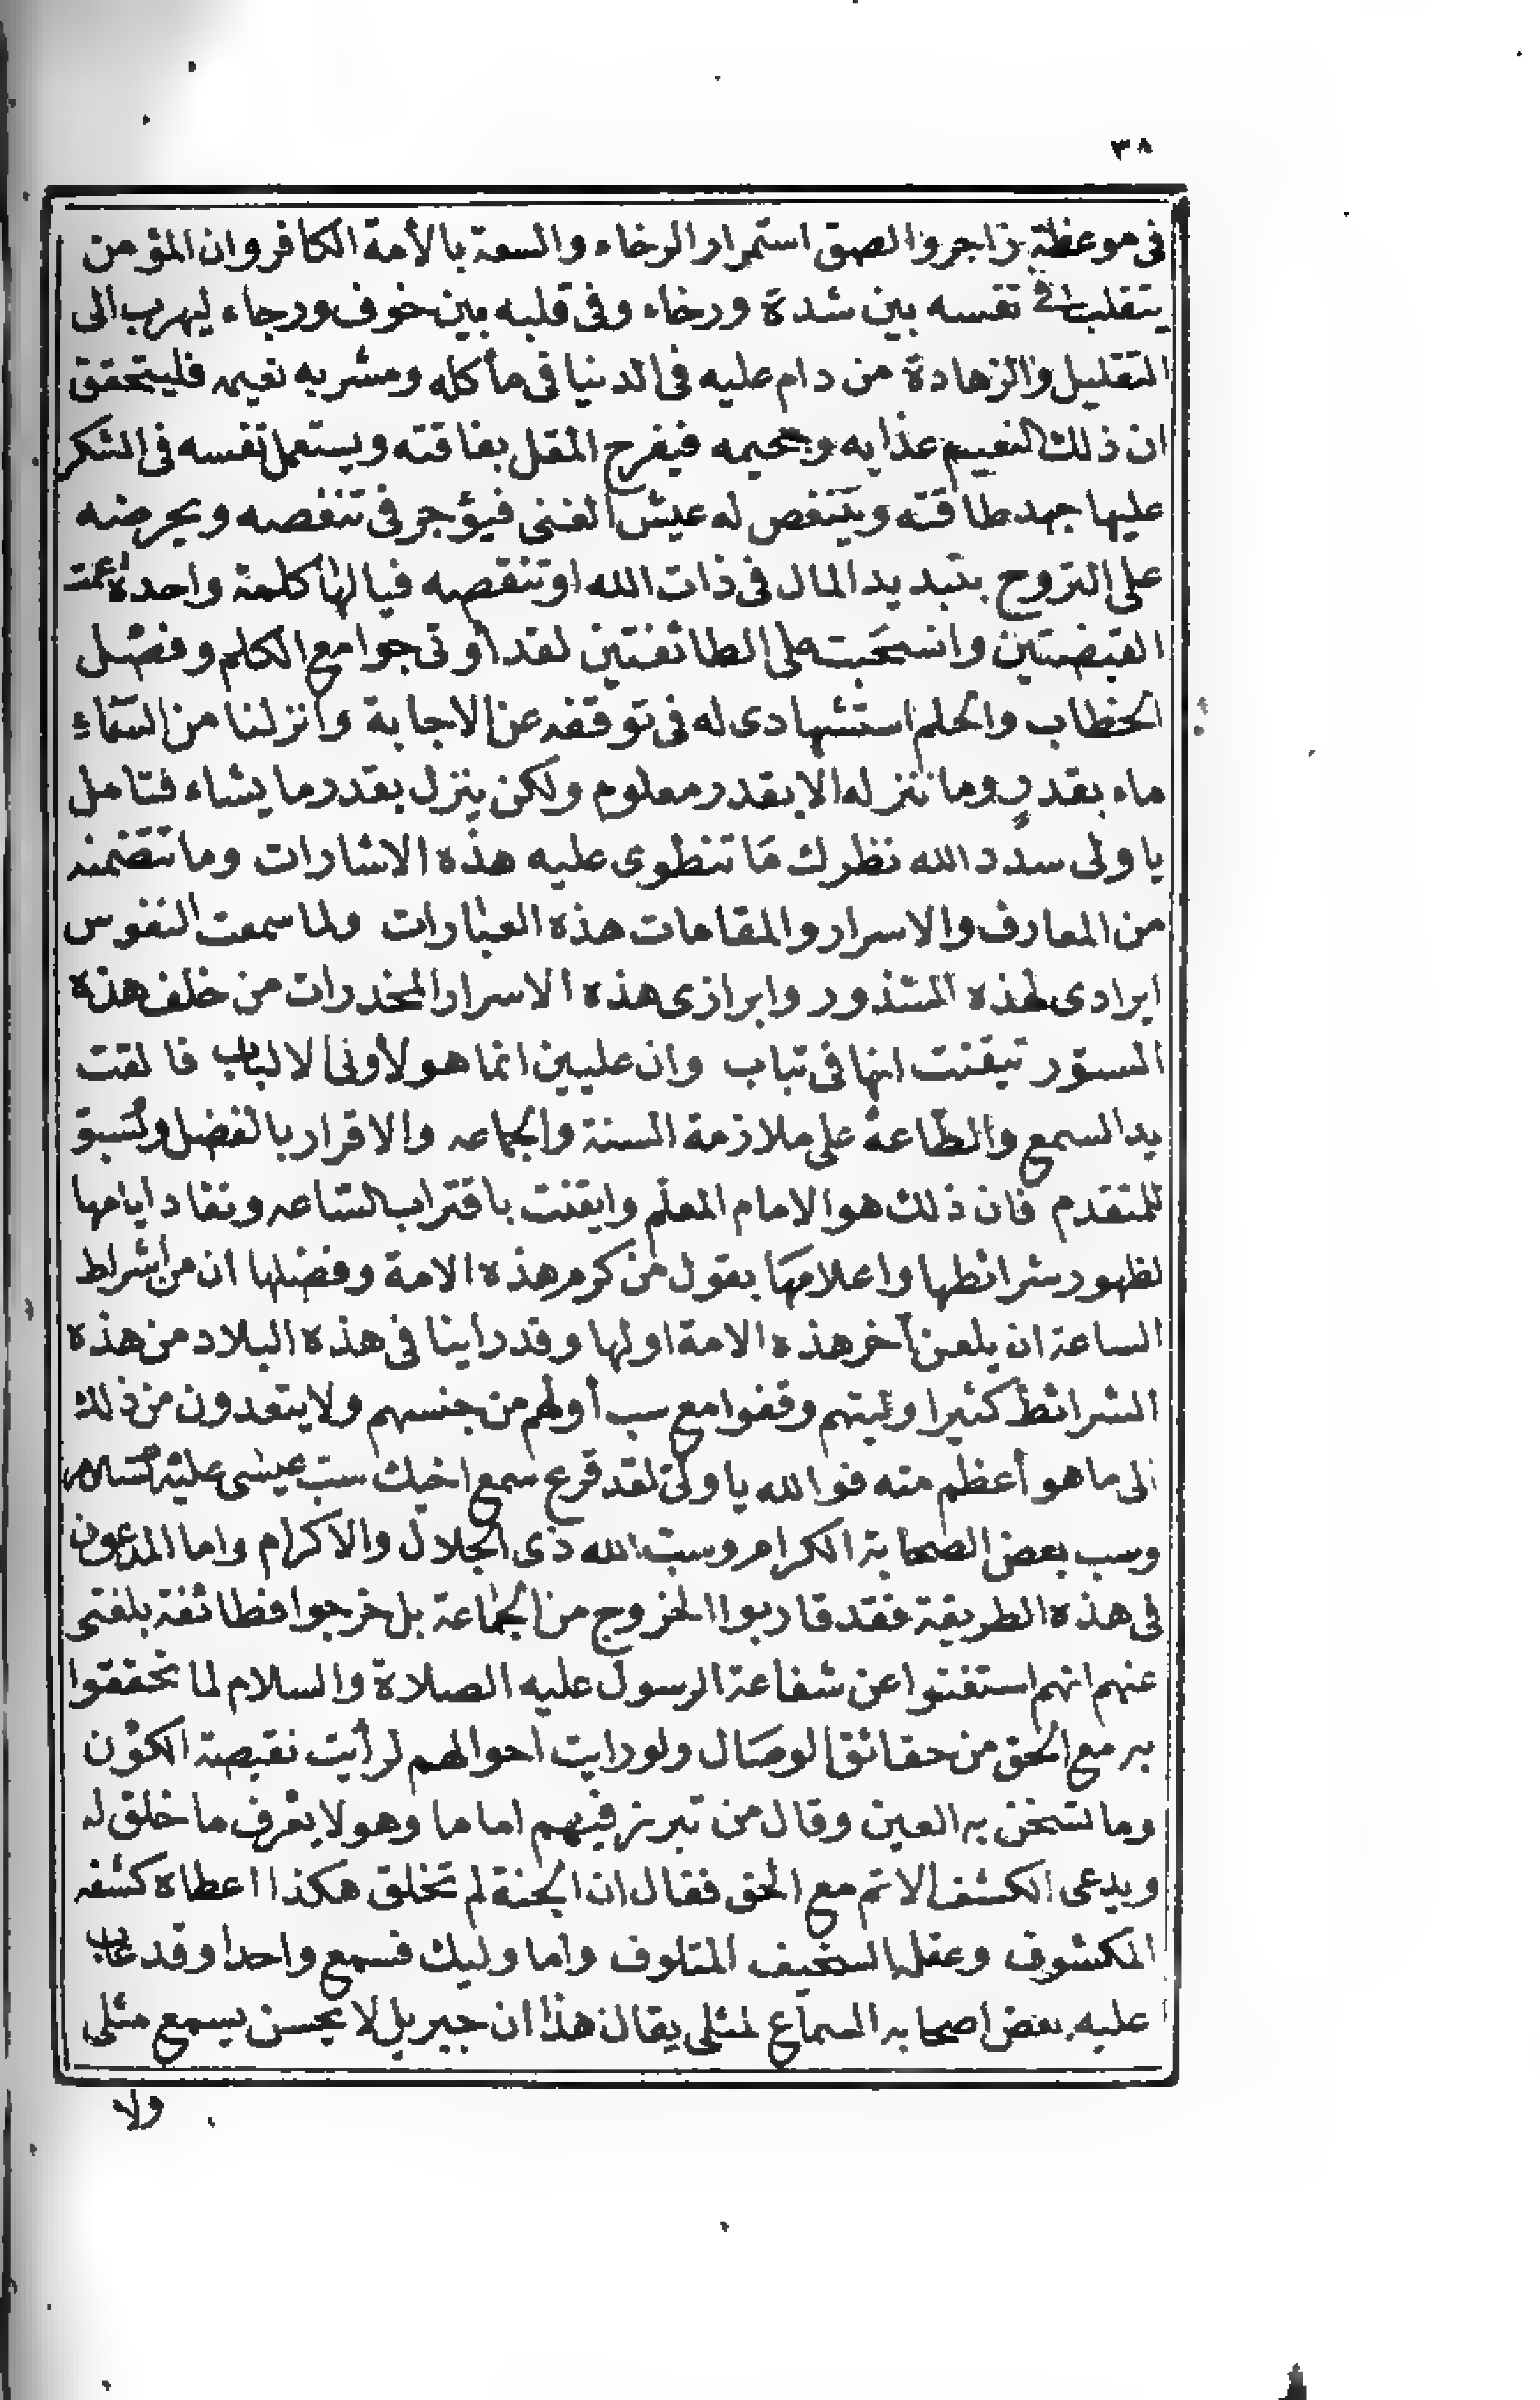 ٣٨
فى موعظة زاجر والصق استمرار الرخاء والسعة بالأمة الكافر وان المؤمن
يتقلب فى نفسه بين شدة ورخاء وفى قلبه بين خوف ورجاء ليهرب الى
التقليل والزهادة من دام عليه فى الدنيا فى مأكله ومشربه نعيمه فليتحقق
ان ذلك النعيم عذابه وجحيمه فيفرح المقل بفاقته ويستعمل نفسه فى الشكر
عليها جهد طاقته ويتنغص له عيش الغنى فيؤجر فى تنغصه ويحرضه
على التروح بتبديد المال فى ذات الله او تنقصه فيالها كلمة واحدة عمت
القبضتين وانسحبت على الطائفتين لقد أوتى جوامع الكلم وفصل
الخطاب والحلم استشهادى له فى توقفه عن الاجابة وانزلنا من السماء
ماء بقدر وما ننزله الا بقدر معلوم ولكن ينزل بقدر ما يشاء فتامل
يا ولى سدد الله نظرك ما تنطوى عليه هذه الاشارات وما تتضمنه
من المعارف والاسرار والمقامات هذه العبارات ولما سمعت النفوس
ايرادى لهذه الشذور وابرازى هذه الاسرار المخدرات من خلف هذه
الستور تيقنت انها فى تباب وان عليين انما هو لأولى الالباب فالقت
يد السمع والطاعة على ملازمة السنة والجماعه والاقرار بالفضل والسبق
للمتقدم فان ذلك هو الامام المعلم وايقنت باقتراب الساعه ونفاد ايامها
لظهور شرائطها واعلامها بقول من كرم هذه الامة وفضلها ان من اشراط
الساعة ان يلعن آخر هذه الامة اولها وقد راينا فى هذه البلاد من هذه
الشرائط كثيرا وليتهم وقفوا مع سب أولهم من جنسهم ولا يتعدون من ذلك
الى ما هو أعظم منه فوالله يا ولى لقد قرع سمع اخيك سب عيسى عليه السلام
وسب بعض الصحابة الكرام وسب الله ذى الجلال والاكرام واما المدعون
فى هذه الطريقة فقد قاربوا الخروج من الجماعة بل خرجوا فطائفة بلغنى
عنهم انهم استغنوا عن شفاعة الرسول عليه الصلاة والسلام لما تحققوا
به مع الحق من حقائق الوصال ولو رايت احوالهم لرأيت نقيصة الكون
وما تسخن به العين وقال من تبرز فيهم اماما وهو لا يعرف ما خلق له
ويدعى الكشف الاتم مع الحق فقال ان الجنة لم تخلق هكذا اعطاه كشفه
المكشوف وعقله السخيف المتلوف واما وليك فسمع واحدا وقد عاب
عليه بعض اصحابه السماع لمثلى يقال هذا ان جبريل لا يحسن يسمع مثلى
ولا